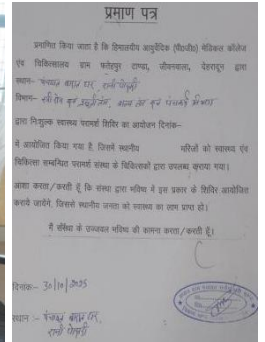 प्रमाण पत्र
प्रमाणित किया जाता है कि हिमालयीय आयुर्वेदिक (पी०जी०) मेडिकल कॉलेज
एवं चिकित्सालय ग्राम फतेहपुर टाण्डा, जीवनवाला, देहरादून द्वारा
स्थान- पंचायत बारात घर, रानी पोखरी
विभाग- स्त्री रोग एवं प्रसूति तंत्र, एवं पंचकर्म
द्वारा निःशुल्क स्वास्थ्य परामर्श शिविर का आयोजन दिनांक-
में आयोजित किया गया है, जिसमें स्थानीय मरीजों को स्वास्थ्य एवं
चिकित्सा सम्बन्धित परामर्श संस्था के चिकित्सकों द्वारा उपलब्ध कराया गया।
आशा करता/करती हूँ कि संस्था द्वारा भविष्य में इस प्रकार के शिविर आयोजित
कराये जायेंगे, जिससे स्थानीय जनता को स्वास्थ्य का लाभ प्राप्त हो।
मैं संस्था के उज्जवल भविष्य की कामना करता/करती हूँ।
दिनांक- 30/10/2025
स्थान :- पंचायत बारात घर,
रानी पोखरी